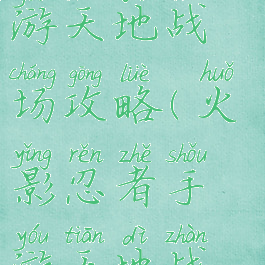 游天地战
cháng gōng lüè huǒ
场攻略(火
yǐng rěn zhě shǒu
影忍者手
yóu tiān dì zhàn
游天地战